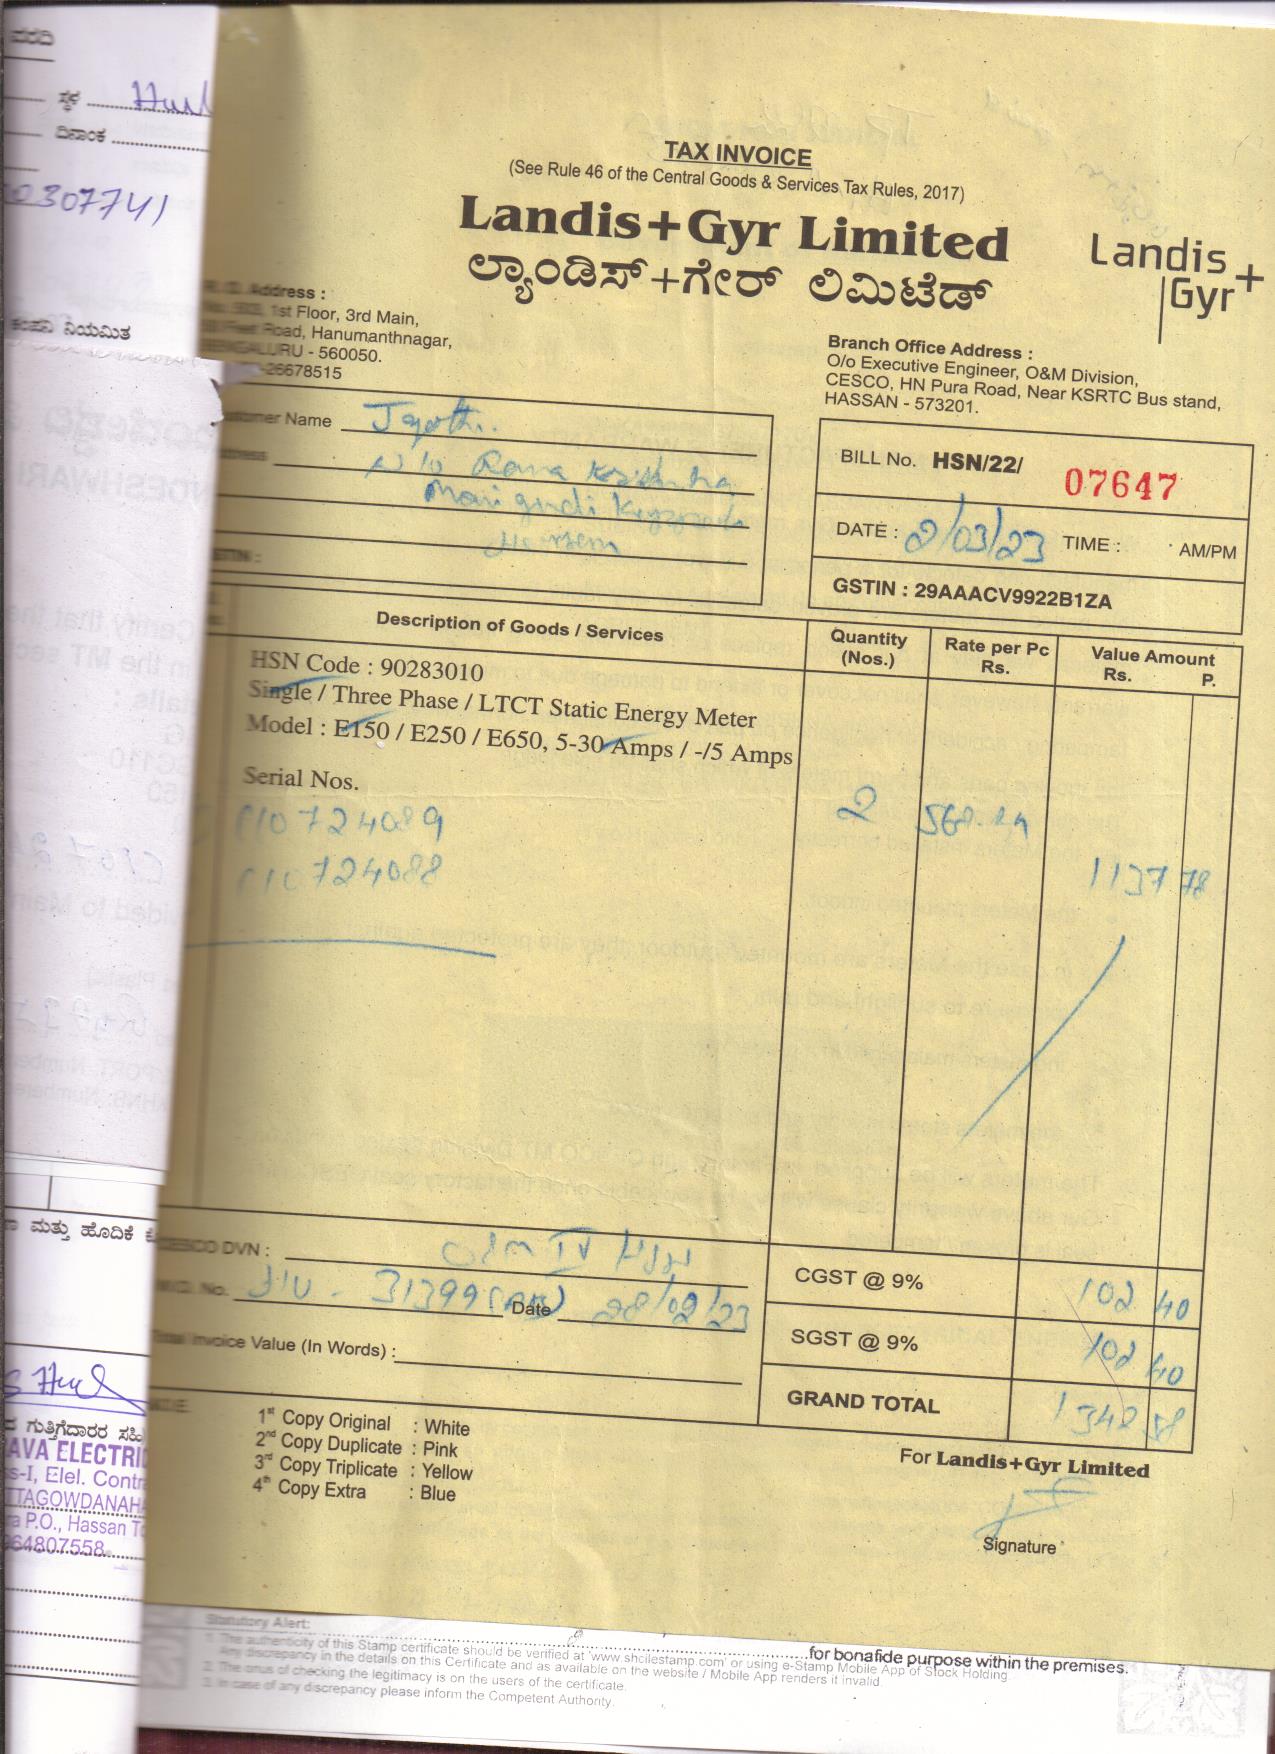 ವರದಿ
ಸ್ಥಳ
ದಿನಾಂಕ
0307741
ಕಂಪನಿ ನಿಯಮಿತ
TAX INVOICE
(See Rule 46 of the Central Goods & Services Tax Rules, 2017)
Landis+Gyr Limited
ಲ್ಯಾಂಡಿಸ್+ಗೇರ್ ಲಿಮಿಟೆಡ್
Landis
Gyr+
Address :
1st Floor, 3rd Main,
Road, Hanumanthnagar,
BENGALURU - 560050.
-26678515
Branch Office Address :
O/o Executive Engineer, O&M Division,
CESCO, HN Pura Road, Near KSRTC Bus stand,
HASSAN - 573201.
Customer Name Jyothi
Address W/o Rama Krishna
GSTIN :
BILL No. HSN/22/ 07647
DATE : 2/03/23 TIME : AM/PM
GSTIN : 29AAACV9922B1ZA
Description of Goods / Services
Quantity (Nos.)
Rate per Pc Rs.
Value Amount Rs. P.
HSN Code : 90283010
Single / Three Phase / LTCT Static Energy Meter
Model : E150 / E250 / E650, 5-30 Amps / -/5 Amps
Serial Nos.
C10724089 2 568.89
C10724088 1137 78
CESCO DVN :
31399 Date 28/02/23
Total Invoice Value (In Words) :
CGST @ 9% 102 40
SGST @ 9% 102 40
GRAND TOTAL 1342 58
NOTE:
1st Copy Original : White
2nd Copy Duplicate : Pink
3rd Copy Triplicate : Yellow
4th Copy Extra : Blue
For Landis+Gyr Limited
Signature
ಮತ್ತು ಹೊದಿಕೆ
ಗುತ್ತಿಗೆದಾರರ ಸಹಿ
AVA ELECTRIC
ss-I, Elel. Contra
TTAGOWDANAHA
ra P.O., Hassan T
964807558
Statutory Alert:
1. The authenticity of this Stamp certificate should be verified at 'www.shcilestamp.com' or using e-Stamp Mobile App of Stock Holding.
Any discrepancy in the details on this Certificate and as available on the website / Mobile App renders it invalid.
2. The onus of checking the legitimacy is on the users of the certificate.
3. In case of any discrepancy please inform the Competent Authority.
for bonafide purpose within the premises.